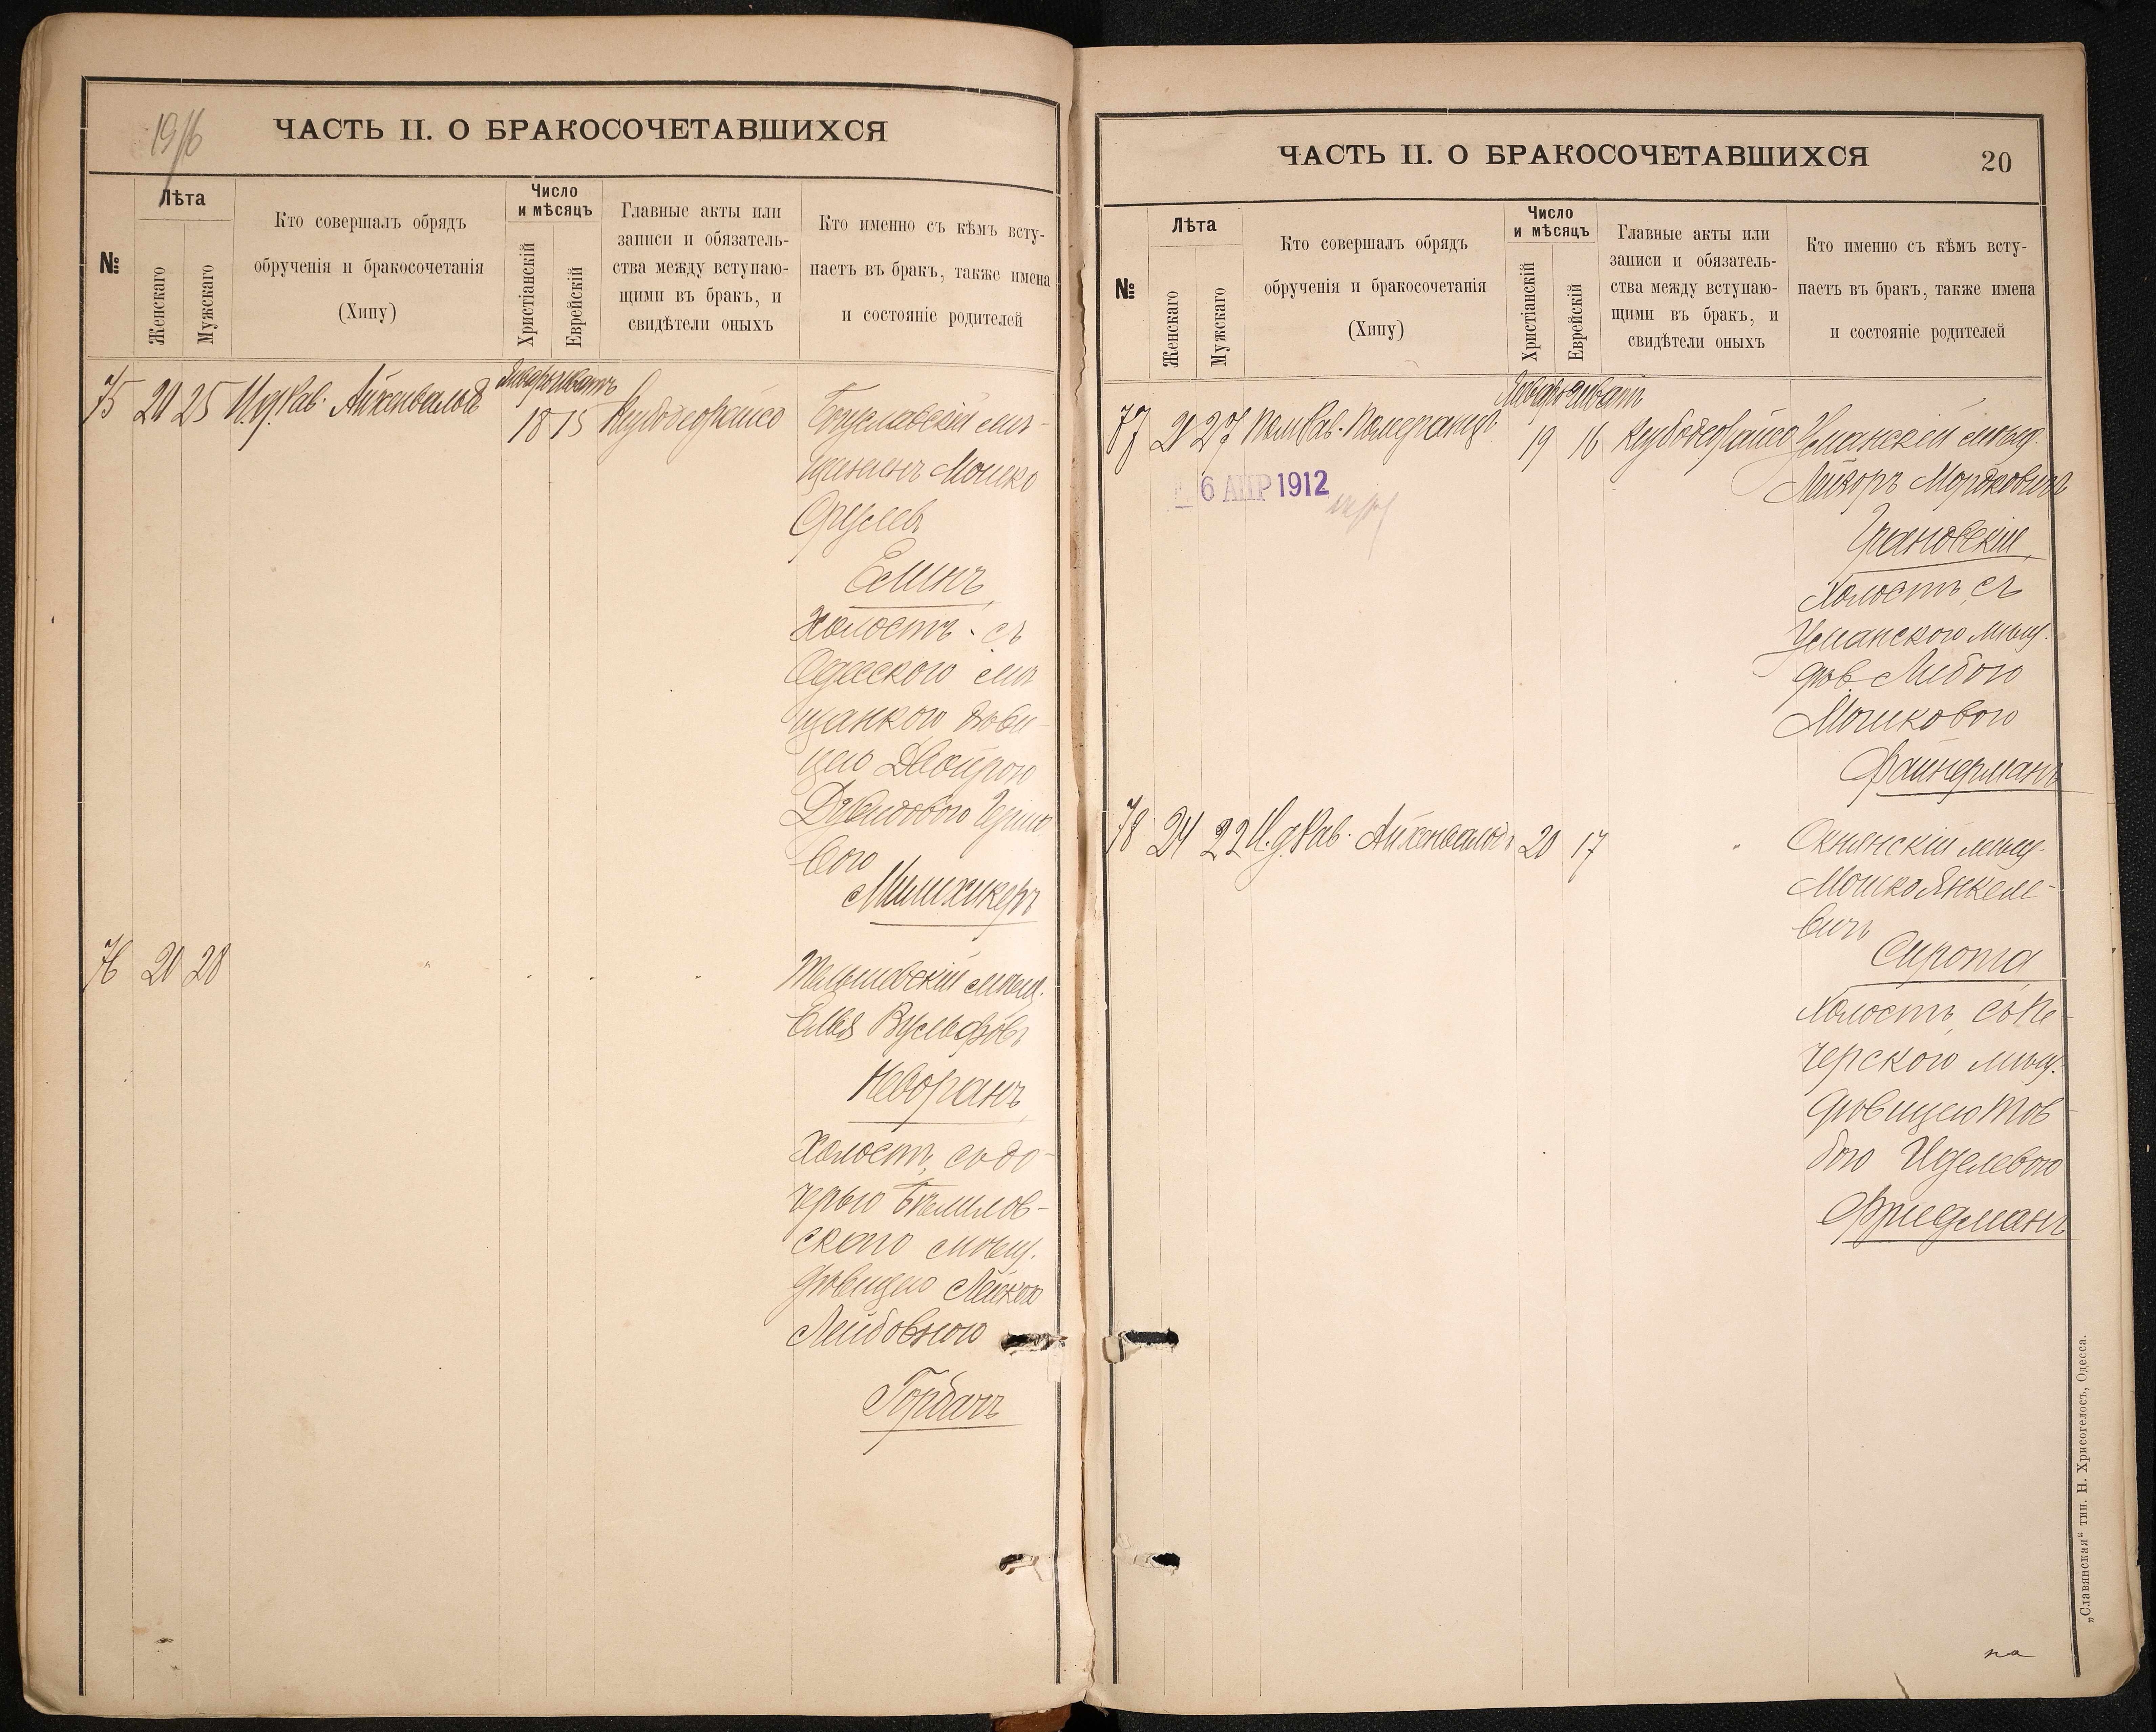 1916
ЧАСТЬ II. О БРАКОСОЧЕТАВШИХСЯ
№
Лѣта
Женскаго
Мужскаго
Кто совершалъ обрядъ
обрученія и бракосочетанія
(Хипу)
Число
и мѣсяцъ
Христіанскій
Еврейскій
Главные акты или
записи и обязатель-
ства между вступаю-
щими въ бракъ, и
свидѣтели оныхъ
Кто именно съ кѣмъ всту-
паетъ въ бракъ, также имена
и состояніе родителей
75 20 25 И.д. Рав. Айхенвальдъ
Январь Шватъ
18 15
Богуславскій мѣ-
щанинъ Мошко
Сруллевъ
Елинъ,
Холостъ съ
Одесского мѣ
щанкою дѣви
цею Двойрою
вою
Милихикеръ
76 20 28
Тальновскій мѣщ.
Елья Вульфовъ
Неворанъ,
Холостъ, съ до-
черью
ского мѣщ.
дѣвицею Лейкою
Лейбовною
Горбачъ
ЧАСТЬ II. О БРАКОСОЧЕТАВШИХСЯ
20
№
Лѣта
Женскаго
Мужскаго
Кто совершалъ обрядъ
обрученія и бракосочетанія
(Хипу)
Число
и мѣсяцъ
Христіанскій
Еврейскій
Главные акты или
записи и обязатель-
ства между вступаю-
щими въ бракъ, и
свидѣтели оныхъ
Кто именно съ кѣмъ всту-
паетъ въ бракъ, также имена
и состояніе родителей
77 21 27 Пом. Рав. Померанцъ
Январь Шватъ
19 16
6 АПР 1912
Уманскій мѣщ.
Лейзоръ Мордковичъ
Грановскій,
Холостъ, съ
Уманского мѣщ.
дѣв Либою
Мошковою
Файнерманъ
78 24 22 И.д. Рав. Айхенвальдъ 20 17
Окнянскій мѣщ.
Мошко Янкеле-
вичъ
Сирота
Холостъ, съ Пе-
черского мѣщ.
дѣвицею Тов-
бою Иделевою
Фридманъ
„Славянская“ тип. Н. Хрисогелосъ, Одесса.